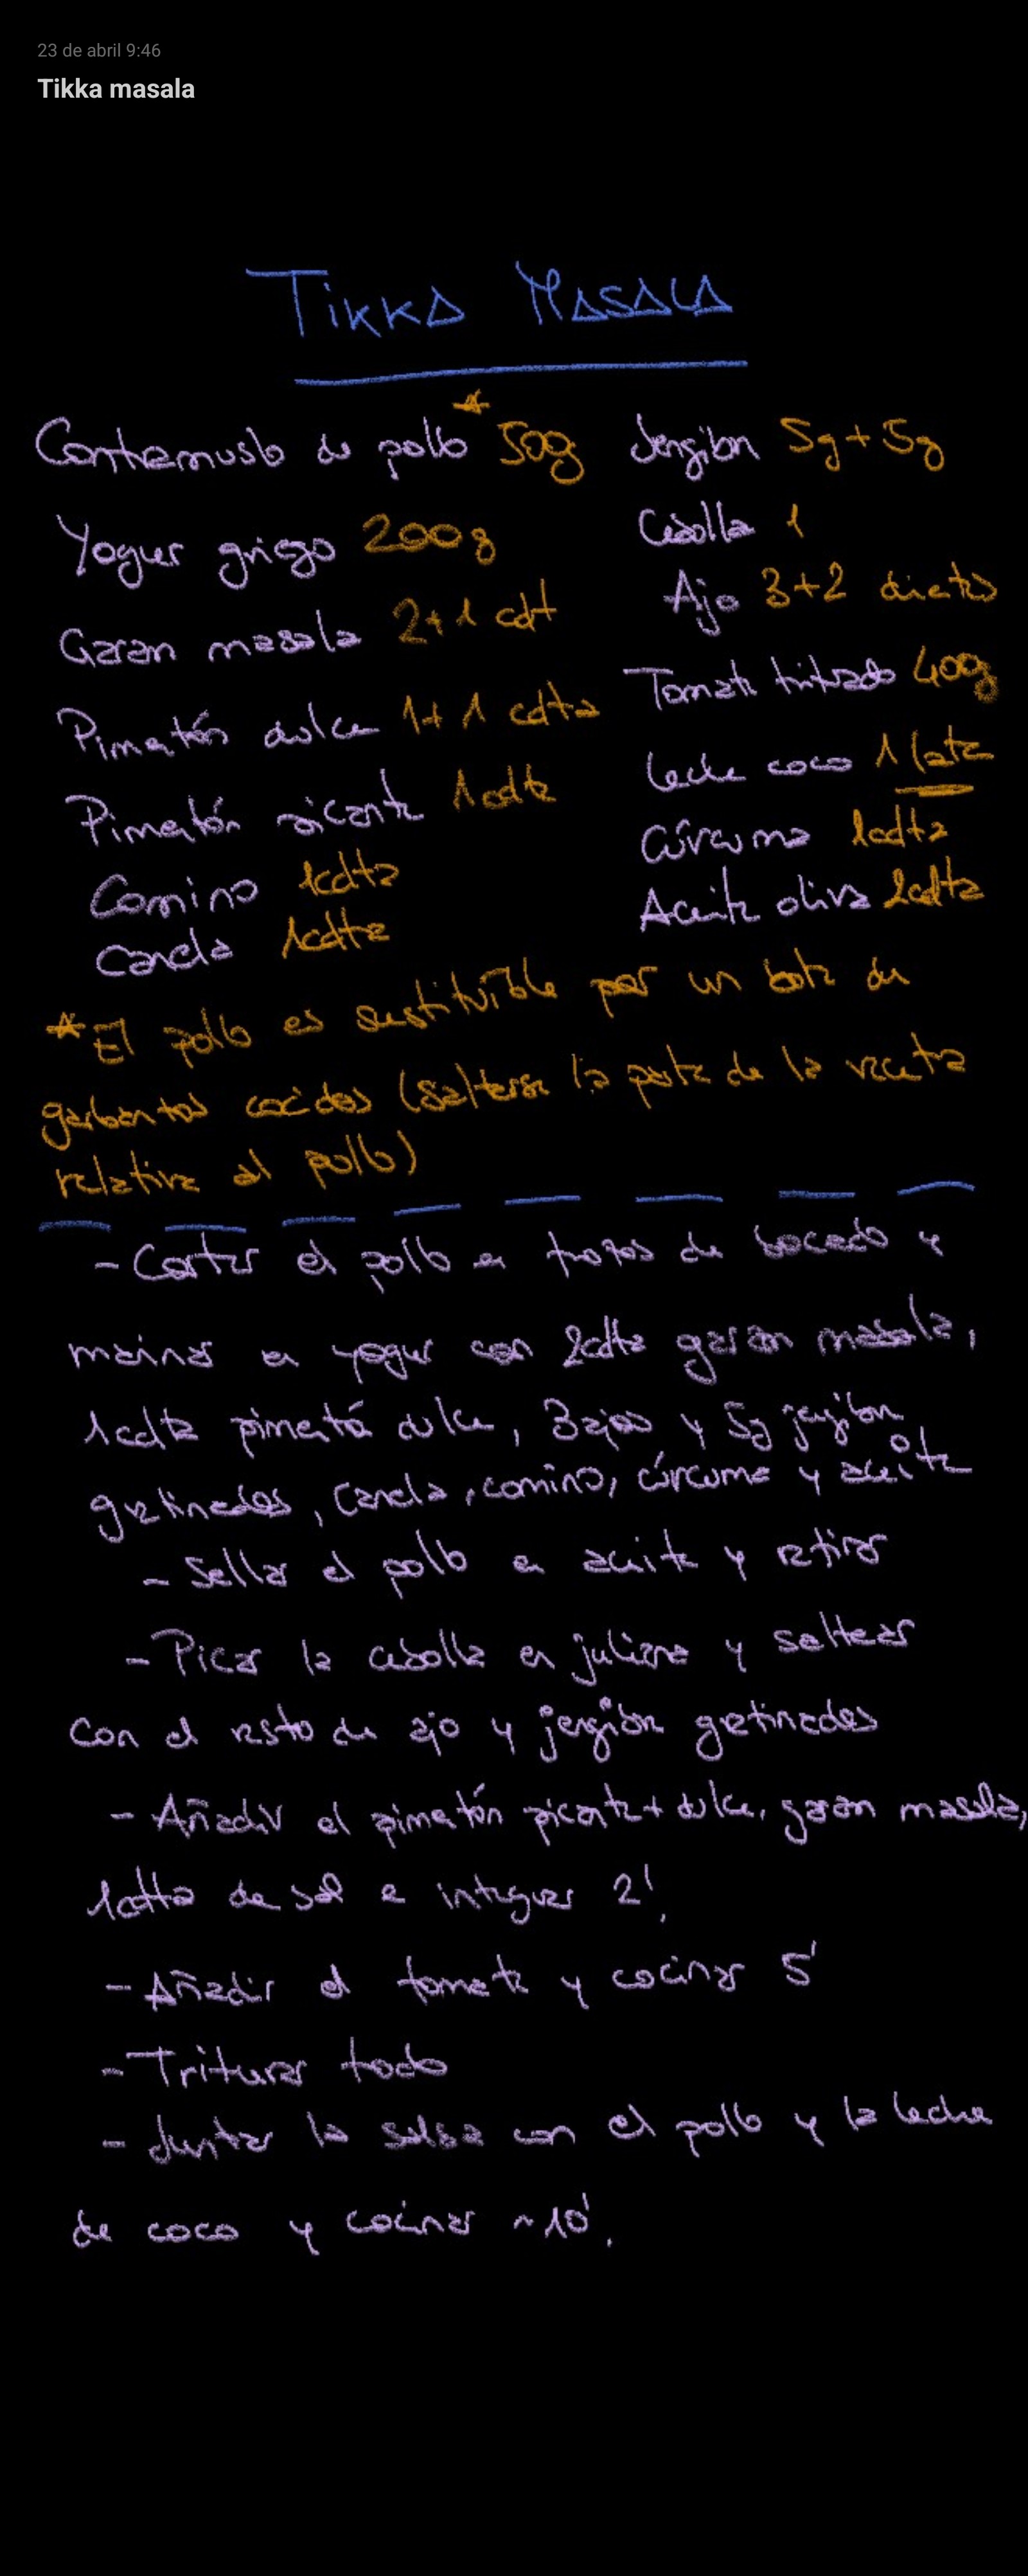 23 de abril 9:46
Tikka masala
TIKKA MASALA
Contramuslo de pollo* 500g
Jengibre 5g+5g
Yogur griego 200g
Cebolla 1
Garan masala 2+1 cdt
Ajo 3+2 dientes
Pimentón dulce 1+1 cdta
Tomate triturado 400g
Pimentón picante 1cdta
Leche coco 1 lata
Comino 1cdta
Cúrcuma 1cdta
Canela 1cdta
Aceite oliva 2cdta
*El pollo es sustituible por un bote de
garbanzos cocidos (saltarse la parte de la receta
relativa al pollo)
- Cortar el pollo en trozos de bocado y
marinar en yogur con 2cdta garan masala,
1cdta pimentón dulce, 3 ajos y 5g jengibre
gratinados, canela, comino, cúrcuma y aceite
- Sellar el pollo en aceite y retirar
- Picar la cebolla en juliana y saltear
con el resto de ajo y jengibre gratinados
- Añadir el pimentón picante + dulce, garan masala,
1cdta de sal e integrar 2'.
- Añadir el tomate y cocinar 5'
- Triturar todo
- Juntar la salsa con el pollo y la leche
de coco y cocinar ~10'.